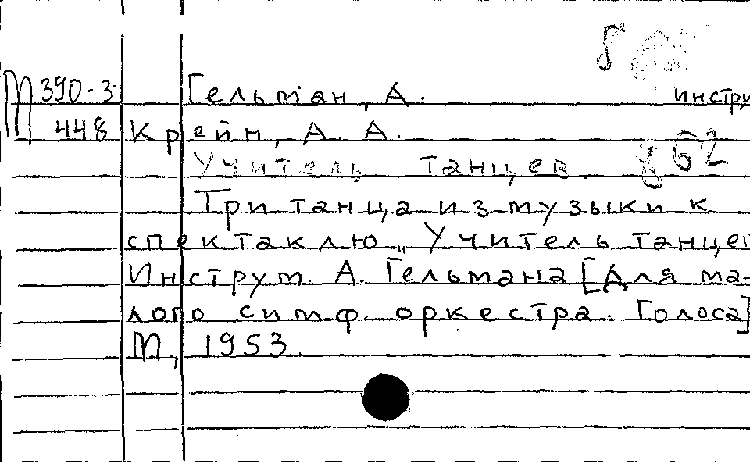 М 390-3 Гельман, А. инстру
448 Крейн, А. А.
Учитель танцев 862
Три танца из музыки к
спектаклю „Учитель танцев
Инструм. А. Гельмана [Для ма-
лого симф. оркестра. Голоса]
М, 1953.